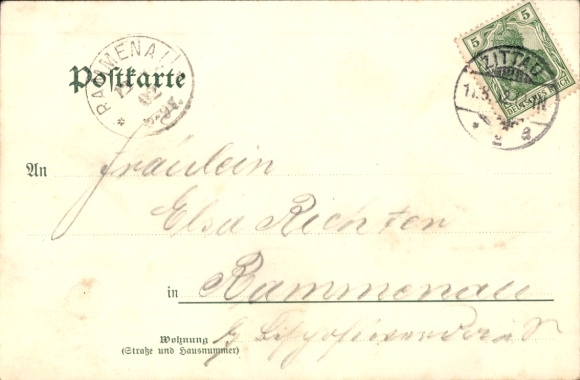 RAMMENAU
02
Postkarte
5
ZITTAU
DEUTSCHES REICH
An Fräulein
Elsa Richter
in Rammenau
Wohnung
(Straße und Hausnummer)
b/ Bischofswerda i/S